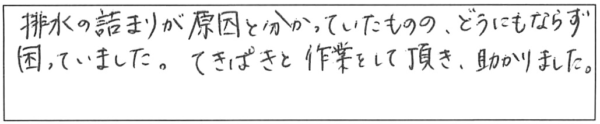 排水の詰まりが原因と分かっていたものの、どうにもならず
困っていました。てきぱきと作業をして頂き、助かりました。